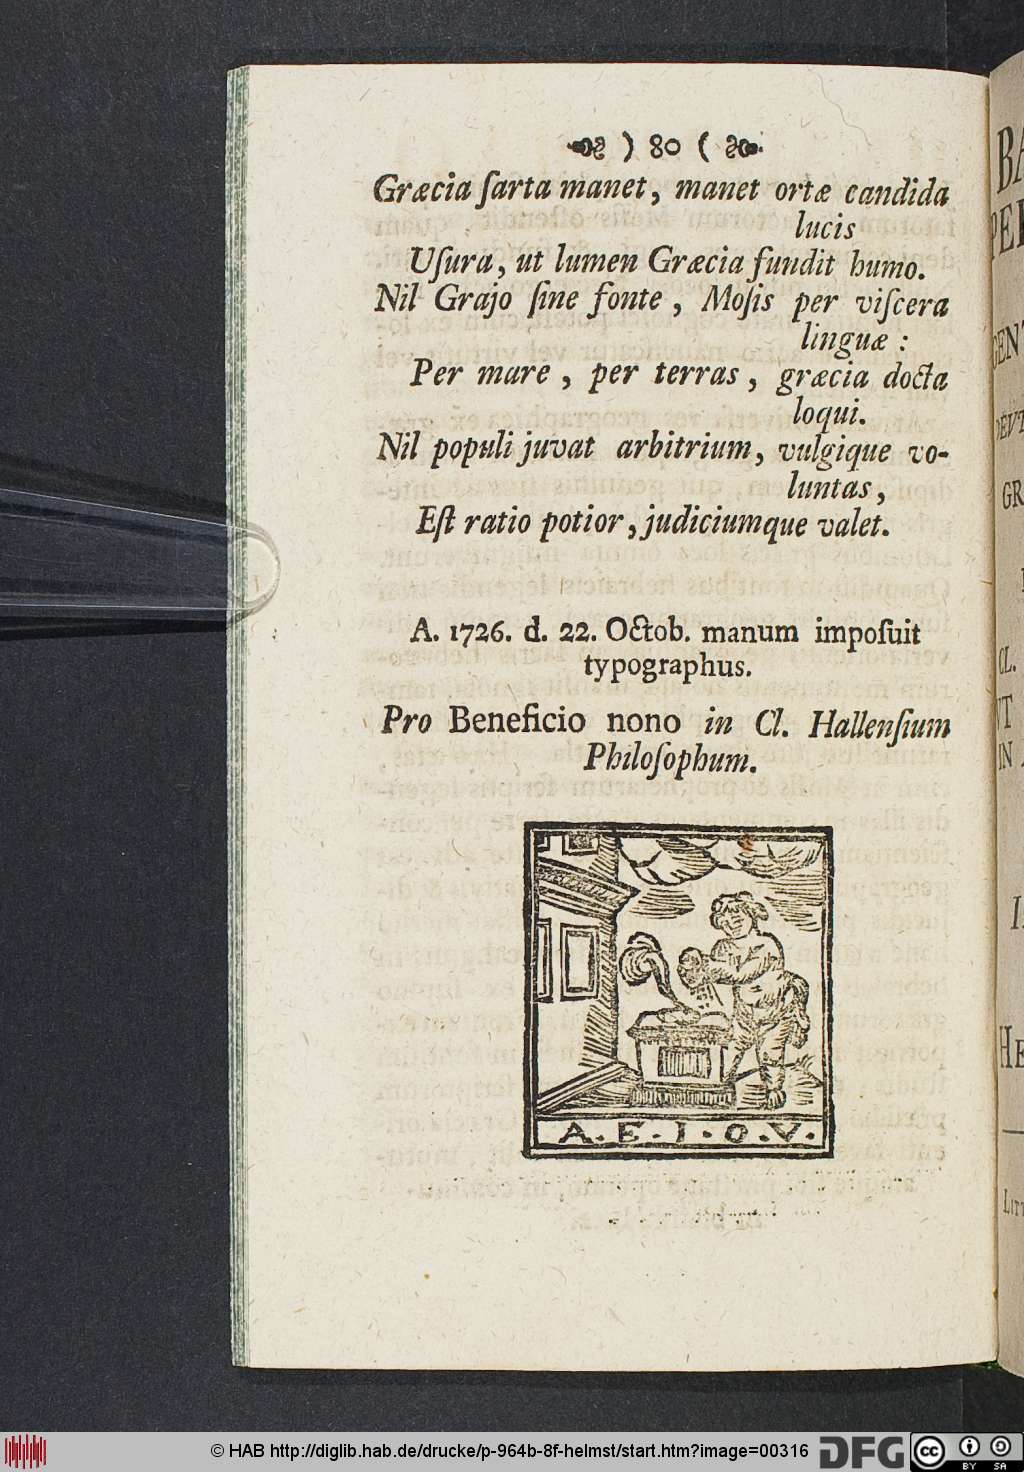 ) 80 (
Græcia ſarta manet, manet ortæ candida
lucis
Uſura, ut lumen Græcia fundit humo.
Nil Grajo ſine fonte, Moſis per viſcera
linguæ :
Per mare, per terras, græcia docta
loqui.
Nil populi juvat arbitrium, vulgique vo-
luntas,
Eſt ratio potior, judiciumque valet.
A. 1726. d. 22. Octob. manum impoſuit
typographus.
Pro Beneficio nono in Cl. Hallenſium
Philoſophum.
A. E. I. O. V.
© HAB http://diglib.hab.de/drucke/p-964b-8f-helmst/start.htm?image=00316
DFG
cc BY SA